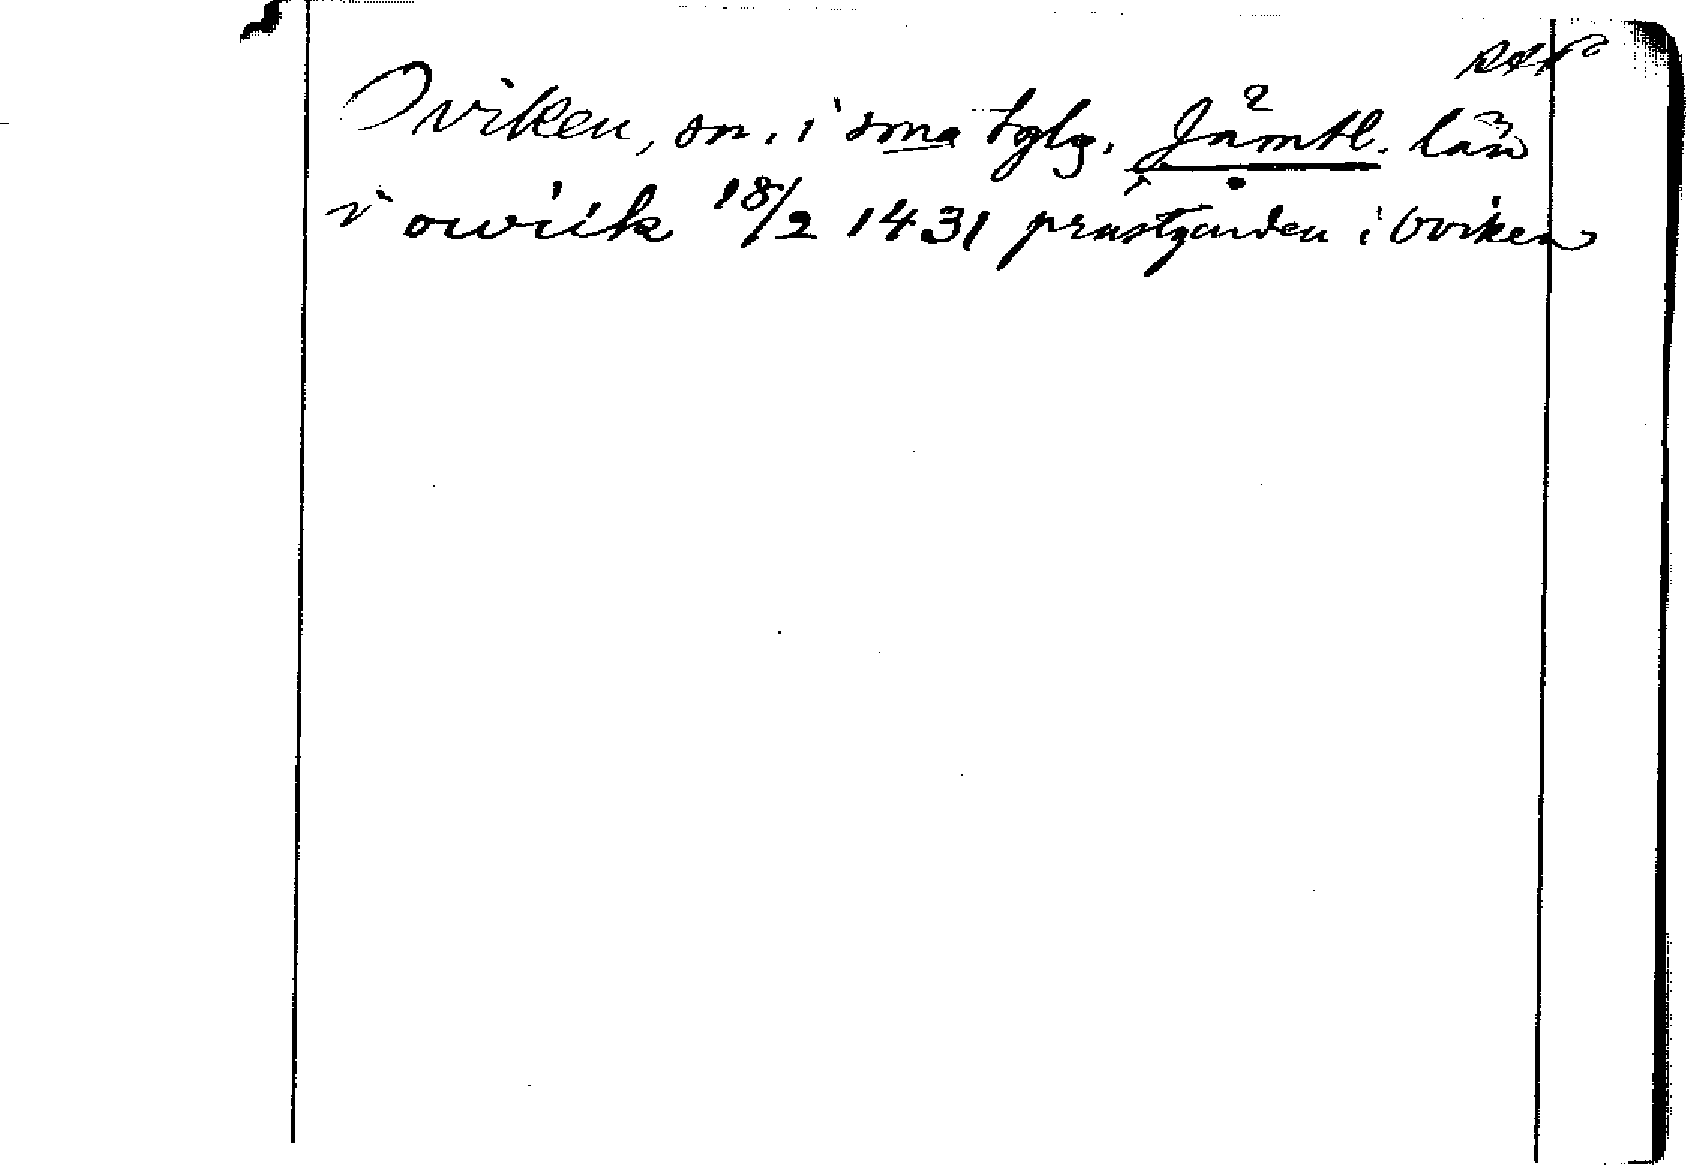 Oviken, sn. i sma tglg. Jämtl. län
i owiik 18/2 1431 prästgården i Oviken